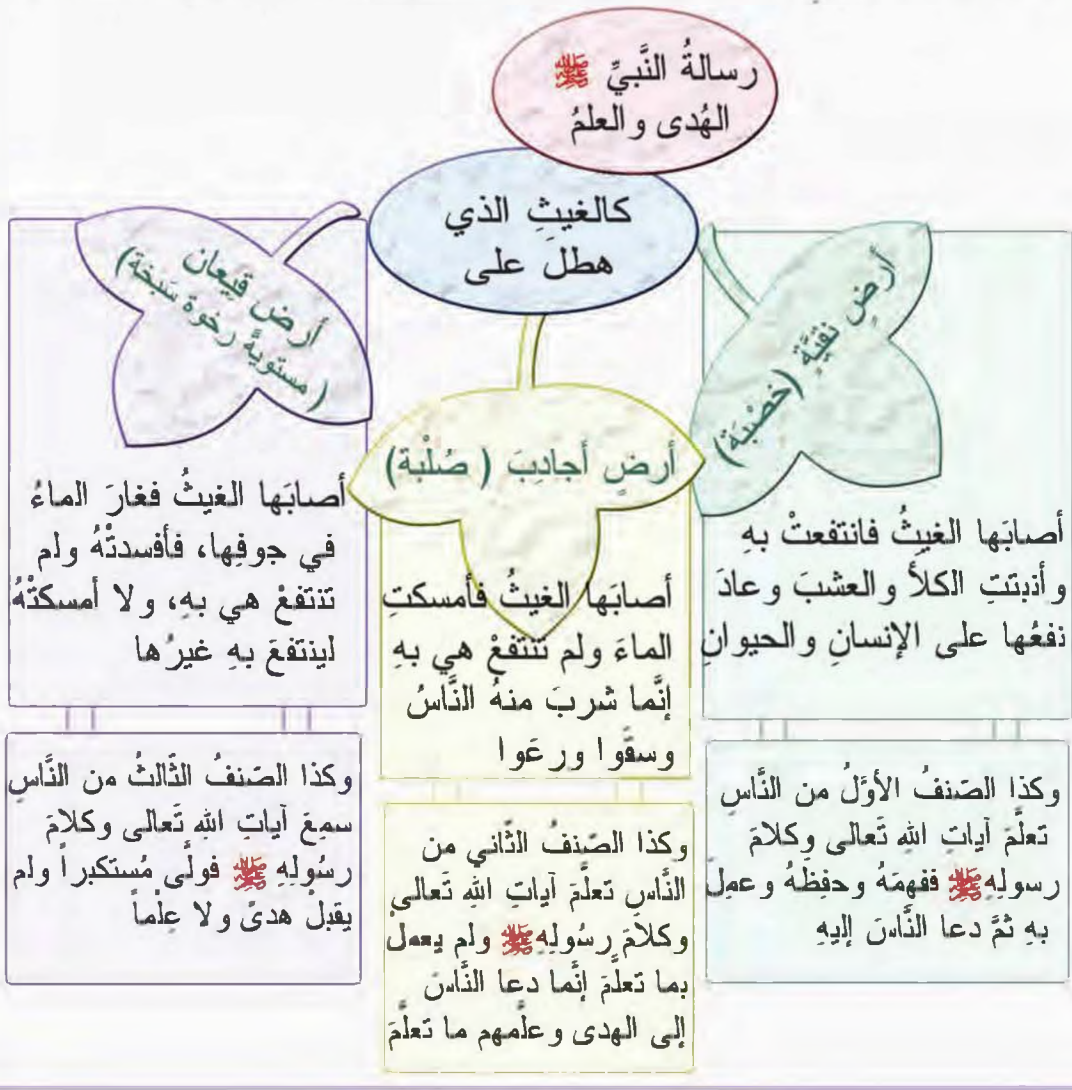 رسالةُ النَّبيِّ ﷺ
الهُدى والعلمُ
كالغيثِ الذي
هطلَ على
أرضٍ نقيَّةٍ (خَصْبَة)
أصابَها الغيثُ فانتفعتْ بهِ
وأنبتتِ الكلأَ والعشبَ وعادَ
نفعُها على الإنسانِ والحيوانِ
وكذا الصّنفُ الأوَّلُ من النَّاسِ
تعلَّمَ آياتِ اللهِ تَعالى وكلامَ
رسولِهِ ﷺ ففهِمَهُ وحفِظَهُ وعمِلَ
بهِ ثمَّ دعا النَّاسَ إليهِ
أرضٍ أجادِبَ ( صُلْبة)
أصابَها الغيثُ فأمسكتِ
الماءَ ولم تنتفعْ هي بهِ
إنَّما شربَ منهُ النَّاسُ
وسقَوا ورعَوا
وكذا الصّنفُ الثّاني من
النَّاسِ تعلَّمَ آياتِ اللهِ تَعالى
وكلامَ رسُولِهِ ﷺ ولم يعملْ
بما تعلَّمَ إنَّما دعا النَّاسَ
إلى الهدى وعلَّمهم ما تعلَّمَ
أرض قيعان
(مستويةٌ رخوة سَبخة)
أصابَها الغيثُ فغارَ الماءُ
في جوفِها، فأفسدتْهُ ولم
تنتفعْ هي بهِ، ولا أمسكتْهُ
لينتفعَ بهِ غيرُها
وكذا الصّنفُ الثّالثُ من النَّاسِ
سمعَ آياتِ اللهِ تَعالى وكلامَ
رسُولِهِ ﷺ فولَّى مُستكبراً ولم
يقبلْ هدىً ولا عِلْماً